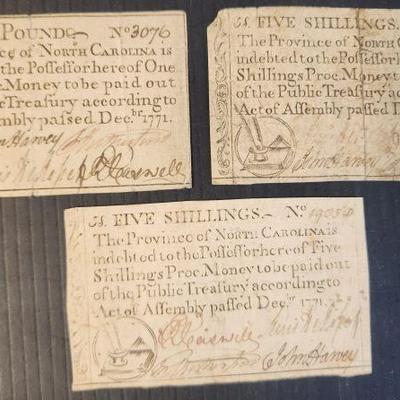 POUND No 3076
ce of NORTH CAROLINA is
the Possessor hereof One
Money to be paid out
Treasury according to
mbly passed Dec.br 1771.
John Harvey
R Caswell
s. FIVE SHILLINGS.
The Province of NORTH C
indebted to the Possessor he
Shillings Proc. Money to
of the Public Treasury ac
Act of Assembly passed D
John Harvey
s. FIVE SHILLINGS. No.
The Province of NORTH CAROLINA is
indebted to the Possessor hereof Five
Shillings Proc. Money to be paid out
of the Public Treasury according to
Act of Assembly passed Dec.br 1771.
R Caswell
John Harvey